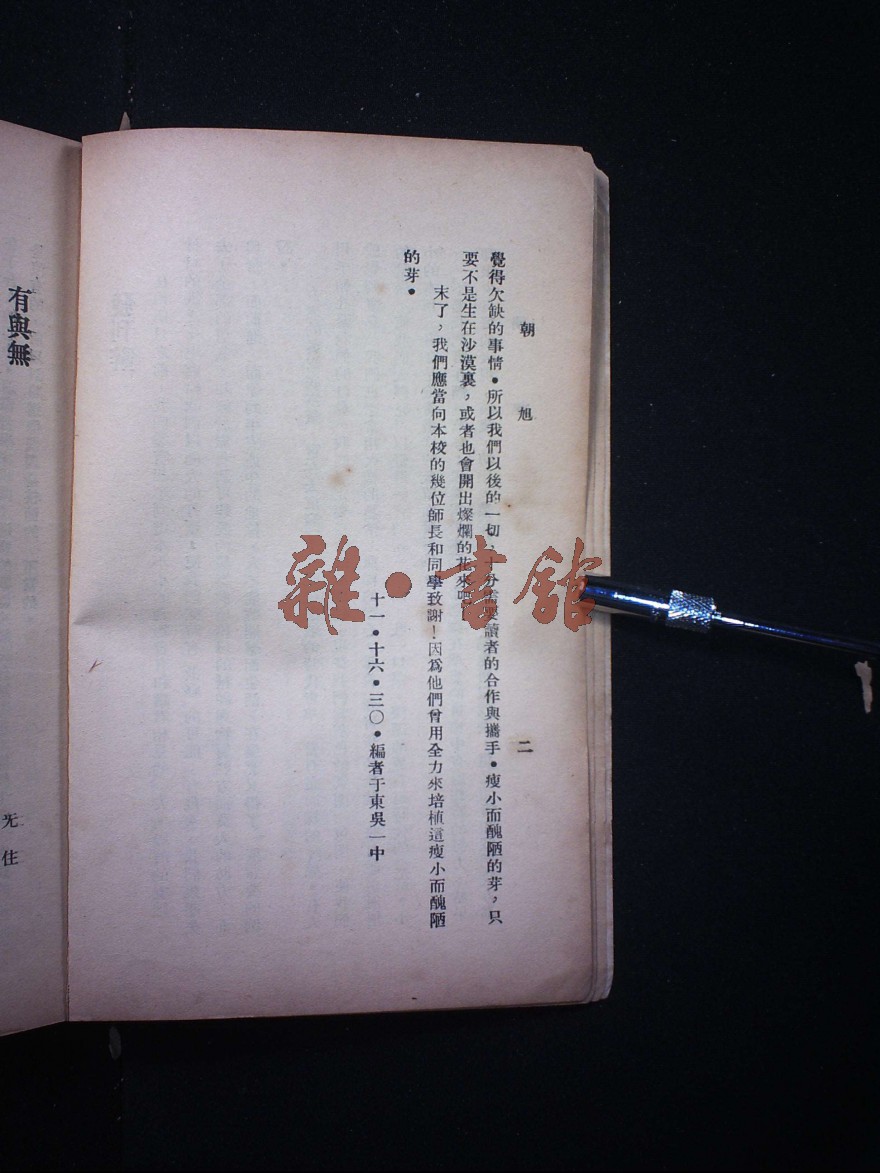 朝旭
二
覺得欠缺的事情。所以我們以後的一切,十分需要讀者的合作與攜手。瘦小而醜陋的芽,只
要不是生在沙漠裏,或者也會開出燦爛的花來吧
末了,我們應當向本校的幾位師長和同學致謝!因爲他們曾用全力來培植這瘦小而醜陋
的芽。
十一。十六。三〇。編者于東吳一中
有與無
住
雜·書館